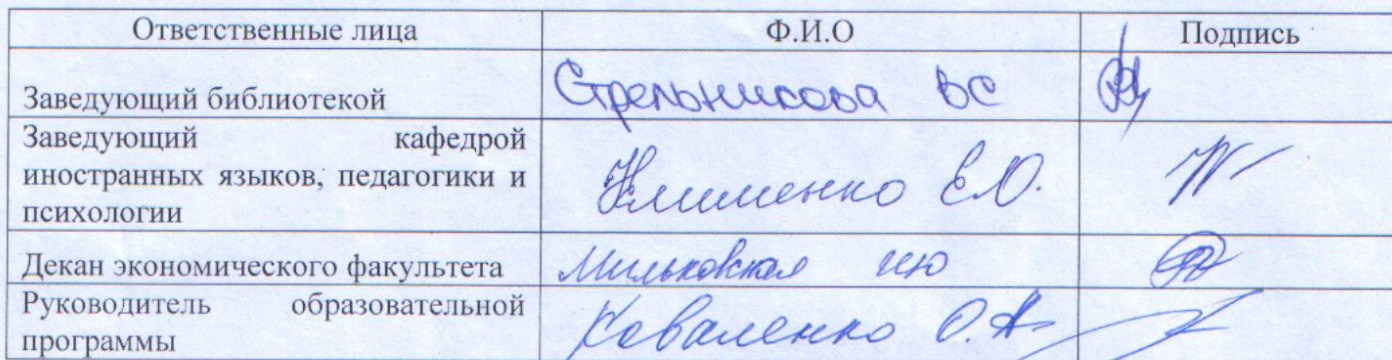 Ответственные лица Ф.И.О Подпись
Заведующий библиотекой Стрельникова ВС
Заведующий кафедрой
иностранных языков, педагогики и
психологии
Клименко Е.О.
Декан экономического факультета Мильковская ИЮ
Руководитель образовательной
программы
Коваленко О.А